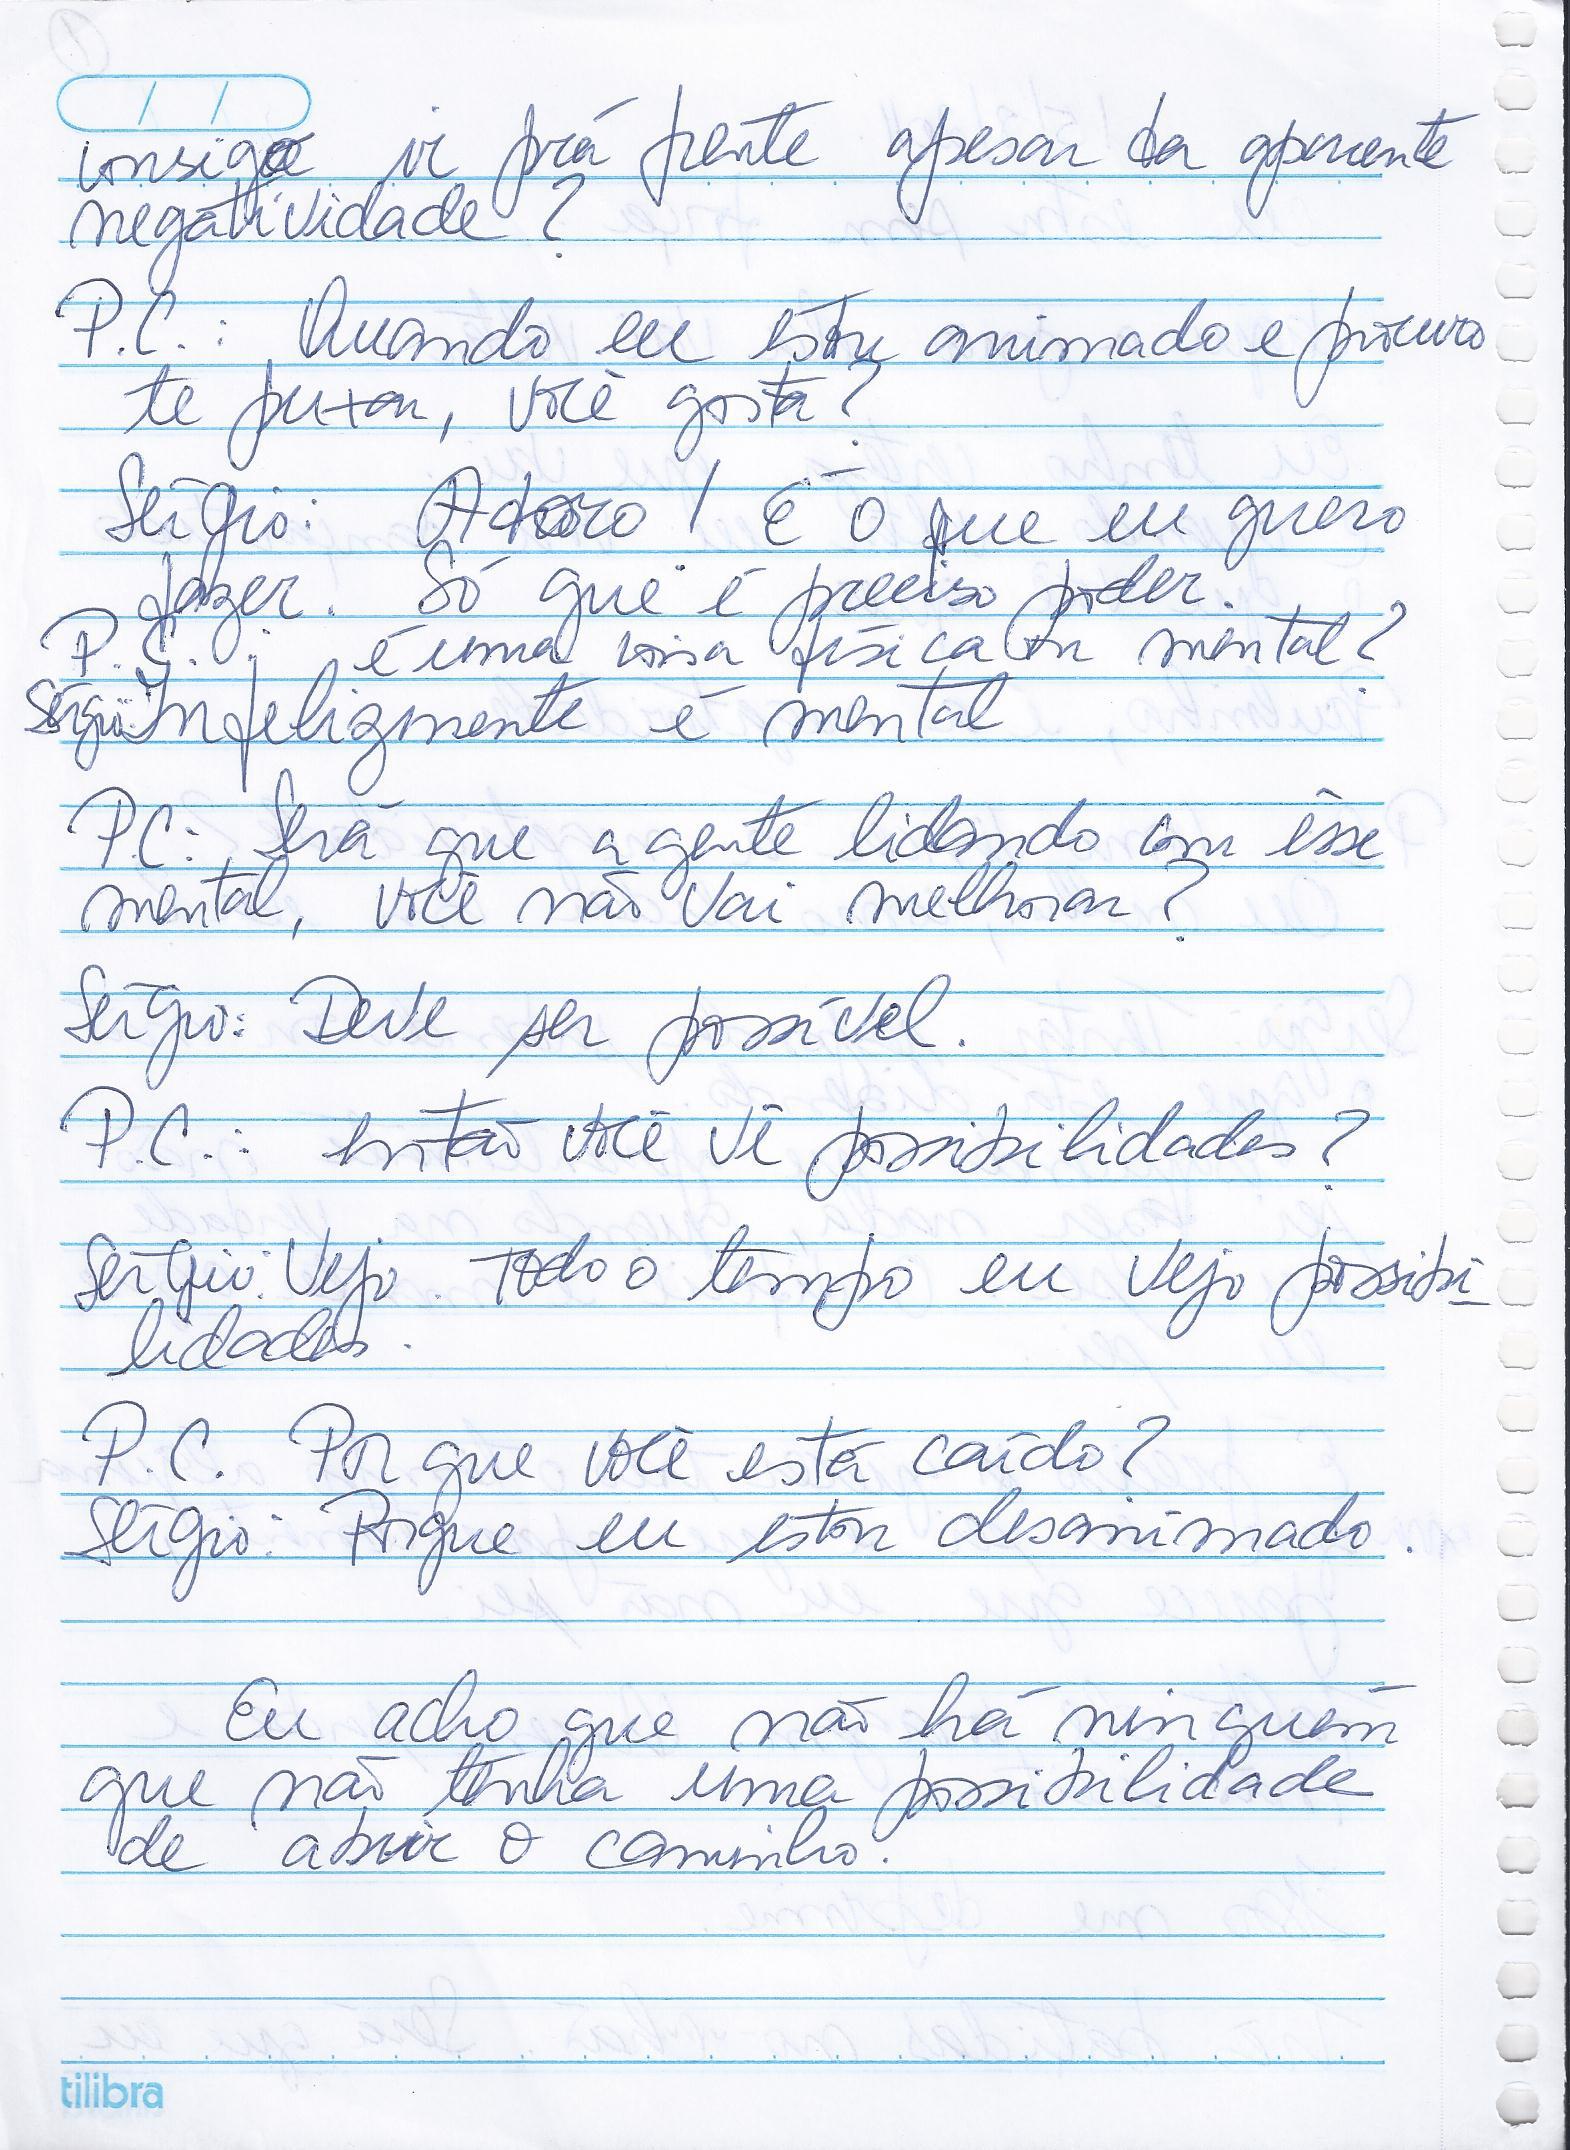 consigo ir prá frente apesar da aparente
negatividade?
P.C.: Quando eu estou animado e procuro
te puxar, você gosta?
Sérgio: Adoro! É o que eu quero
fazer. Só que é preciso poder.
P.C.: é uma coisa física ou mental?
Sérgio: Infelizmente é mental
P.C: Será que a gente lidando com êsse
mental, você não vai melhorar?
Sérgio: Deve ser possível.
P.C.: Então você vê possibilidades?
Sérgio: Vejo. Todo o tempo eu vejo possibi-
lidades.
P.C. Por que você está caído?
Sérgio: Porque eu estou desanimado.
Eu acho que não há ninguém
que não tenha uma possibilidade
de abrir o caminho.
tilibra